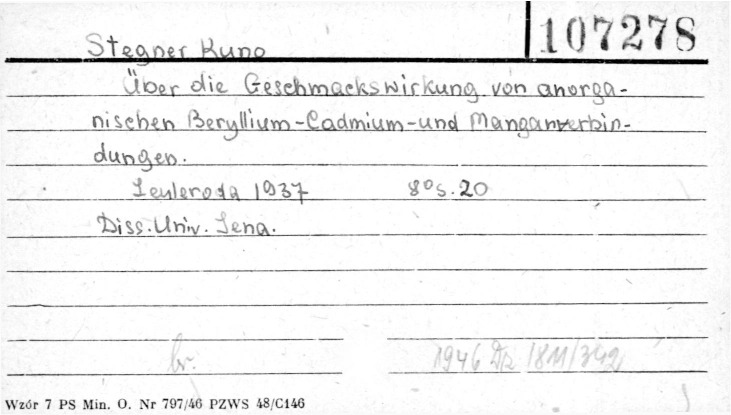 107278
Stegner Kuno
Über die Geschmackswirkung von anorga-
nischen Beryllium-Cadmium-und Manganverbin-
dungen.
Zeulenroda 1937 8° s. 20
Diss. Univ. Jena.
br.
1946 Dz 1811/342
Wzór 7 PS Min. O. Nr 797/46 PZWS 48/C146